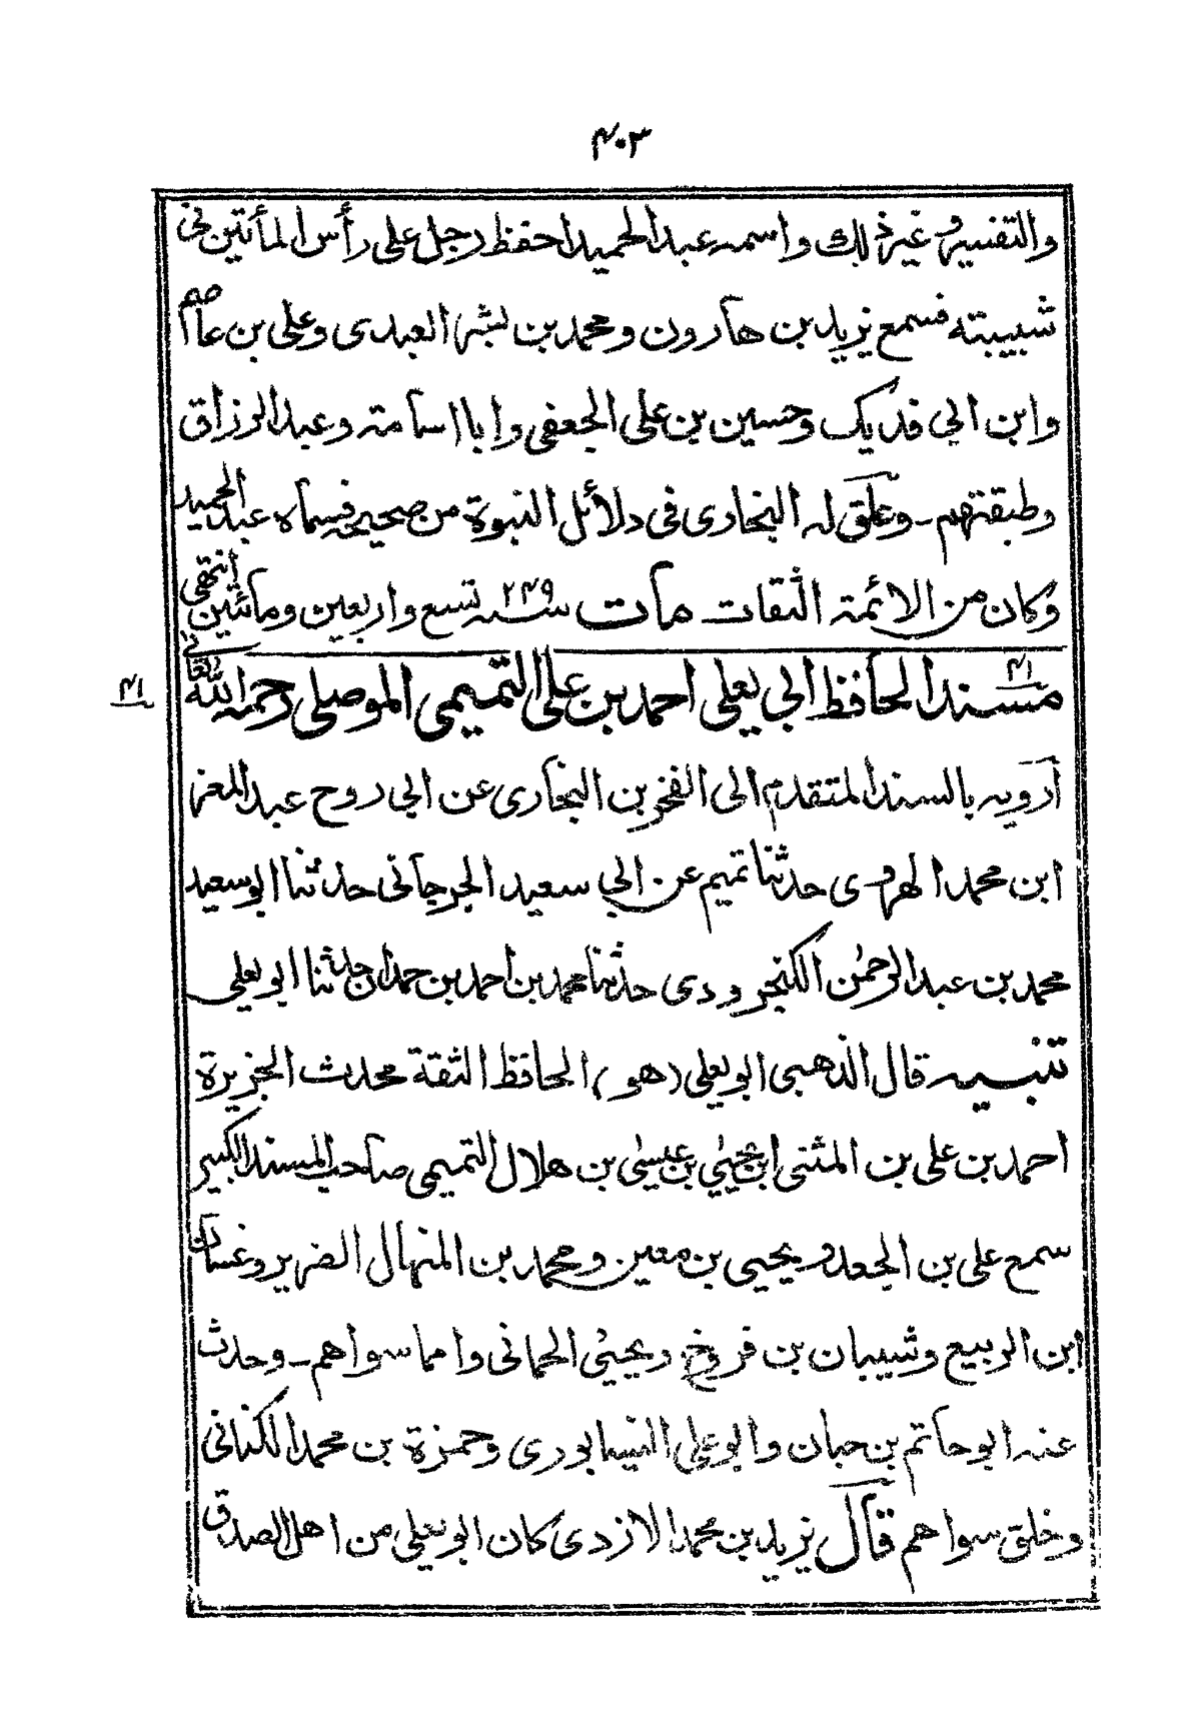 ۴۰۳
والتفسير وغير ذلك واسمه عبدالحميد احفظ رجل على رأس المأتين في
شبيبته فسمع يزيد بن هارون ومحمد بن بشر العبدى وعلى بن عاصم
وابن ابي فديك وحسين بن على الجعفى وابا اسامة وعبدالرزاق
وطبقتهم ـ وعلق له البخارى فى دلائل النبوة من صحيحه فسماه عبدالحميد
وكان من الائمة الثقات مات سنه ۲۴۹ تسع واربعين ومائتين انتهى
۴۱ مسند الحافظ ابي يعلى احمد بن على التميمى الموصلى رحمه الله تعالى
۴۱
أرويه بالسند المتقدم الى الفخر بن البخارى عن ابي روح عبدالمعز
ابن محمد الهروى حدثنا تميم عن ابي سعيد الجرجانى حدثنا ابو سعيد
محمد بن عبدالرحمٰن الكنجرودى حدثنا محمد بن احمد بن حمدان حدثنا ابو يعلى
تنبيه قال الذهبى ابو يعلى (هو) الحافظ الثقة محدث الجزيرة
احمد بن على بن المثنى ابن يحيىٰ بن عيسىٰ بن هلال التميمى صاحب المسند الكبير
سمع على بن الجعد ويحيى بن معين ومحمد بن المنهال الضرير وغسان
ابن الربيع وشيبان بن فروخ ويحيىٰ الحمانى وامما سواهم ـ وحدث
عنه ابو حاتم بن حبان وابو على النيسابورى وحمزة بن محمد الكنانى
وخلق سواهم قال يزيد بن محمد الازدى كان ابو يعلى من اهل الصدق